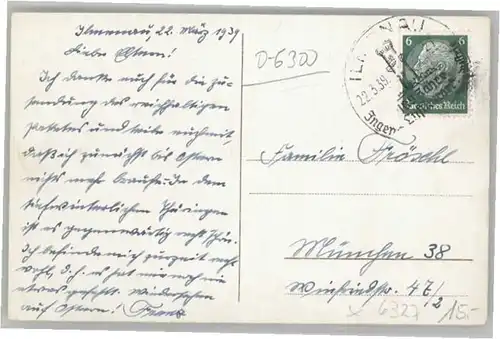 Ilmenau, 22. März 1939
Liebe Eltern!
Ich danke euch für die Zu-
sendung des reichhaltigen
Paketes und teile euch mit,
daß ich zunächst bis Ostern
nichts mehr brauche. In dem
tiefwinterlichen Thüringen
ist es gegenwärtig recht schön.
Ich befinde mich zurzeit recht
wohl, d. h. es hat mir noch nie
etwas gefehlt. Wiedersehen
auf Ostern! Franz
D-6300
ILMENAU
22.3.39
Ingen
6
Deutsches Reich
Familie Fröschl
München 38
Winfriedstr. 47/2
x 6327
15.-